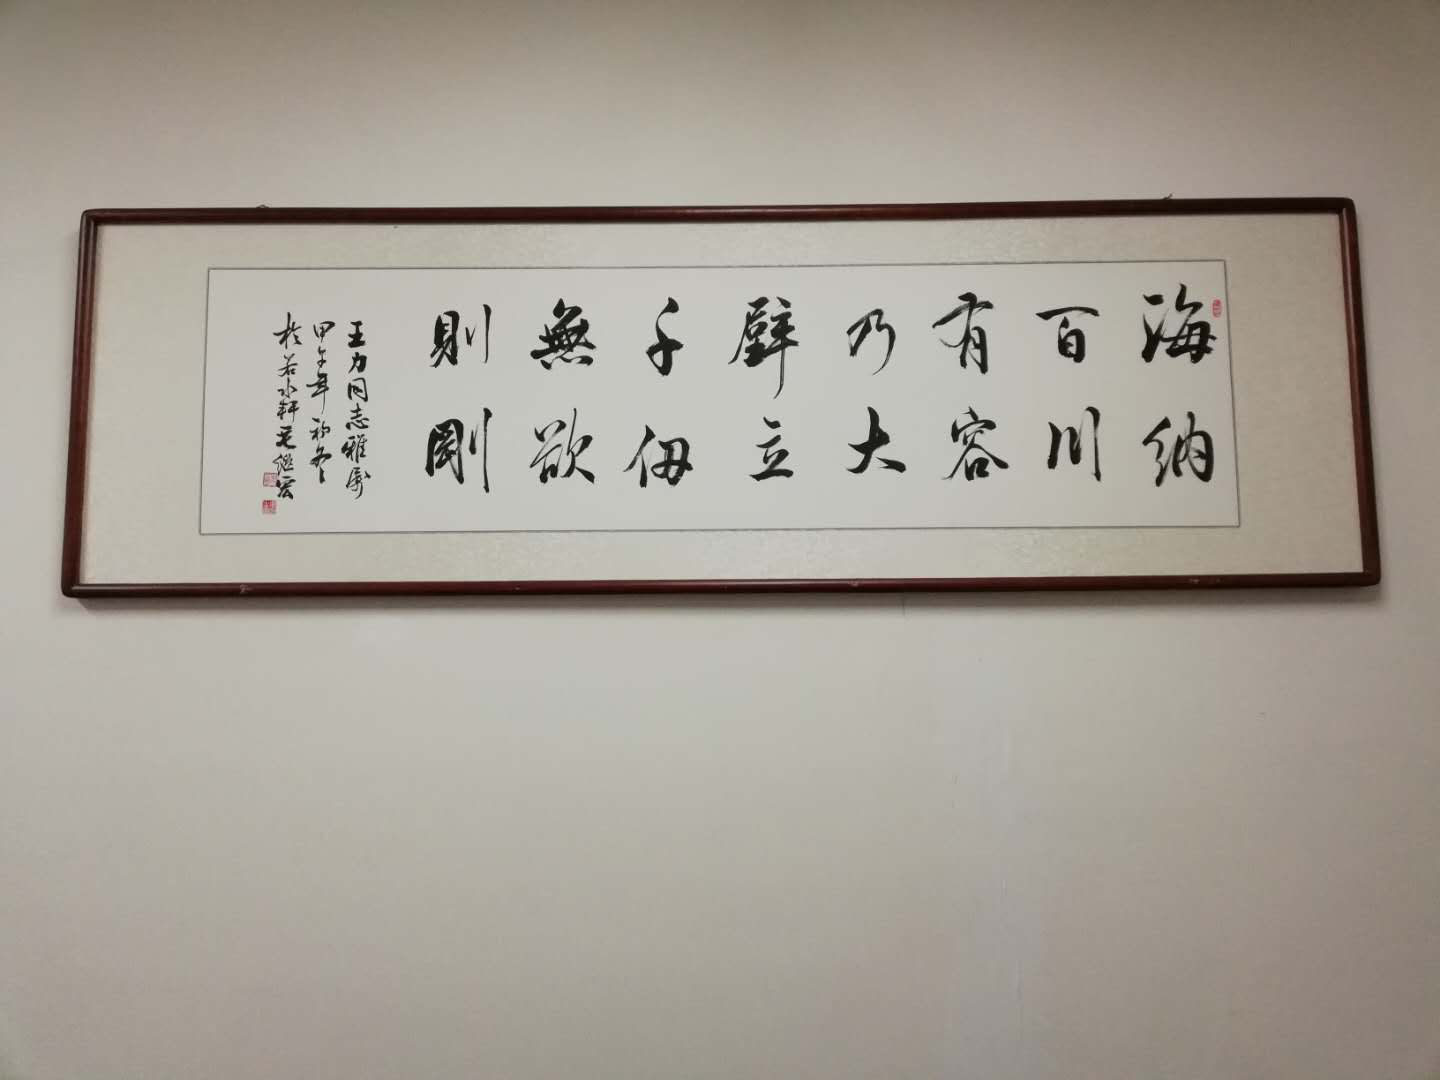 海纳
百川
有容
乃大
壁立
千仞
無欲
則剛
王力同志雅属
甲午年初冬
於若水軒 继宏